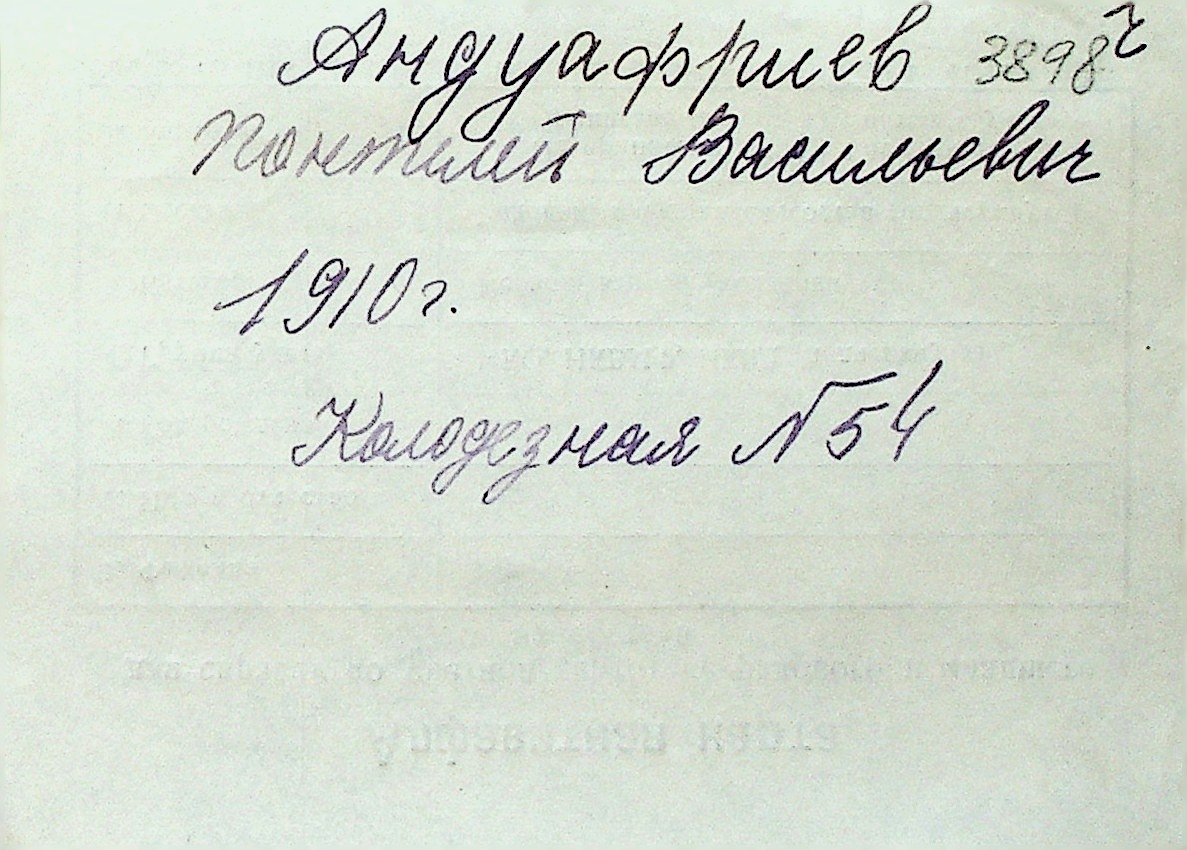 Андуафриев 3898 г
Понтелей Васильевич
1910г.
Колодезная №54